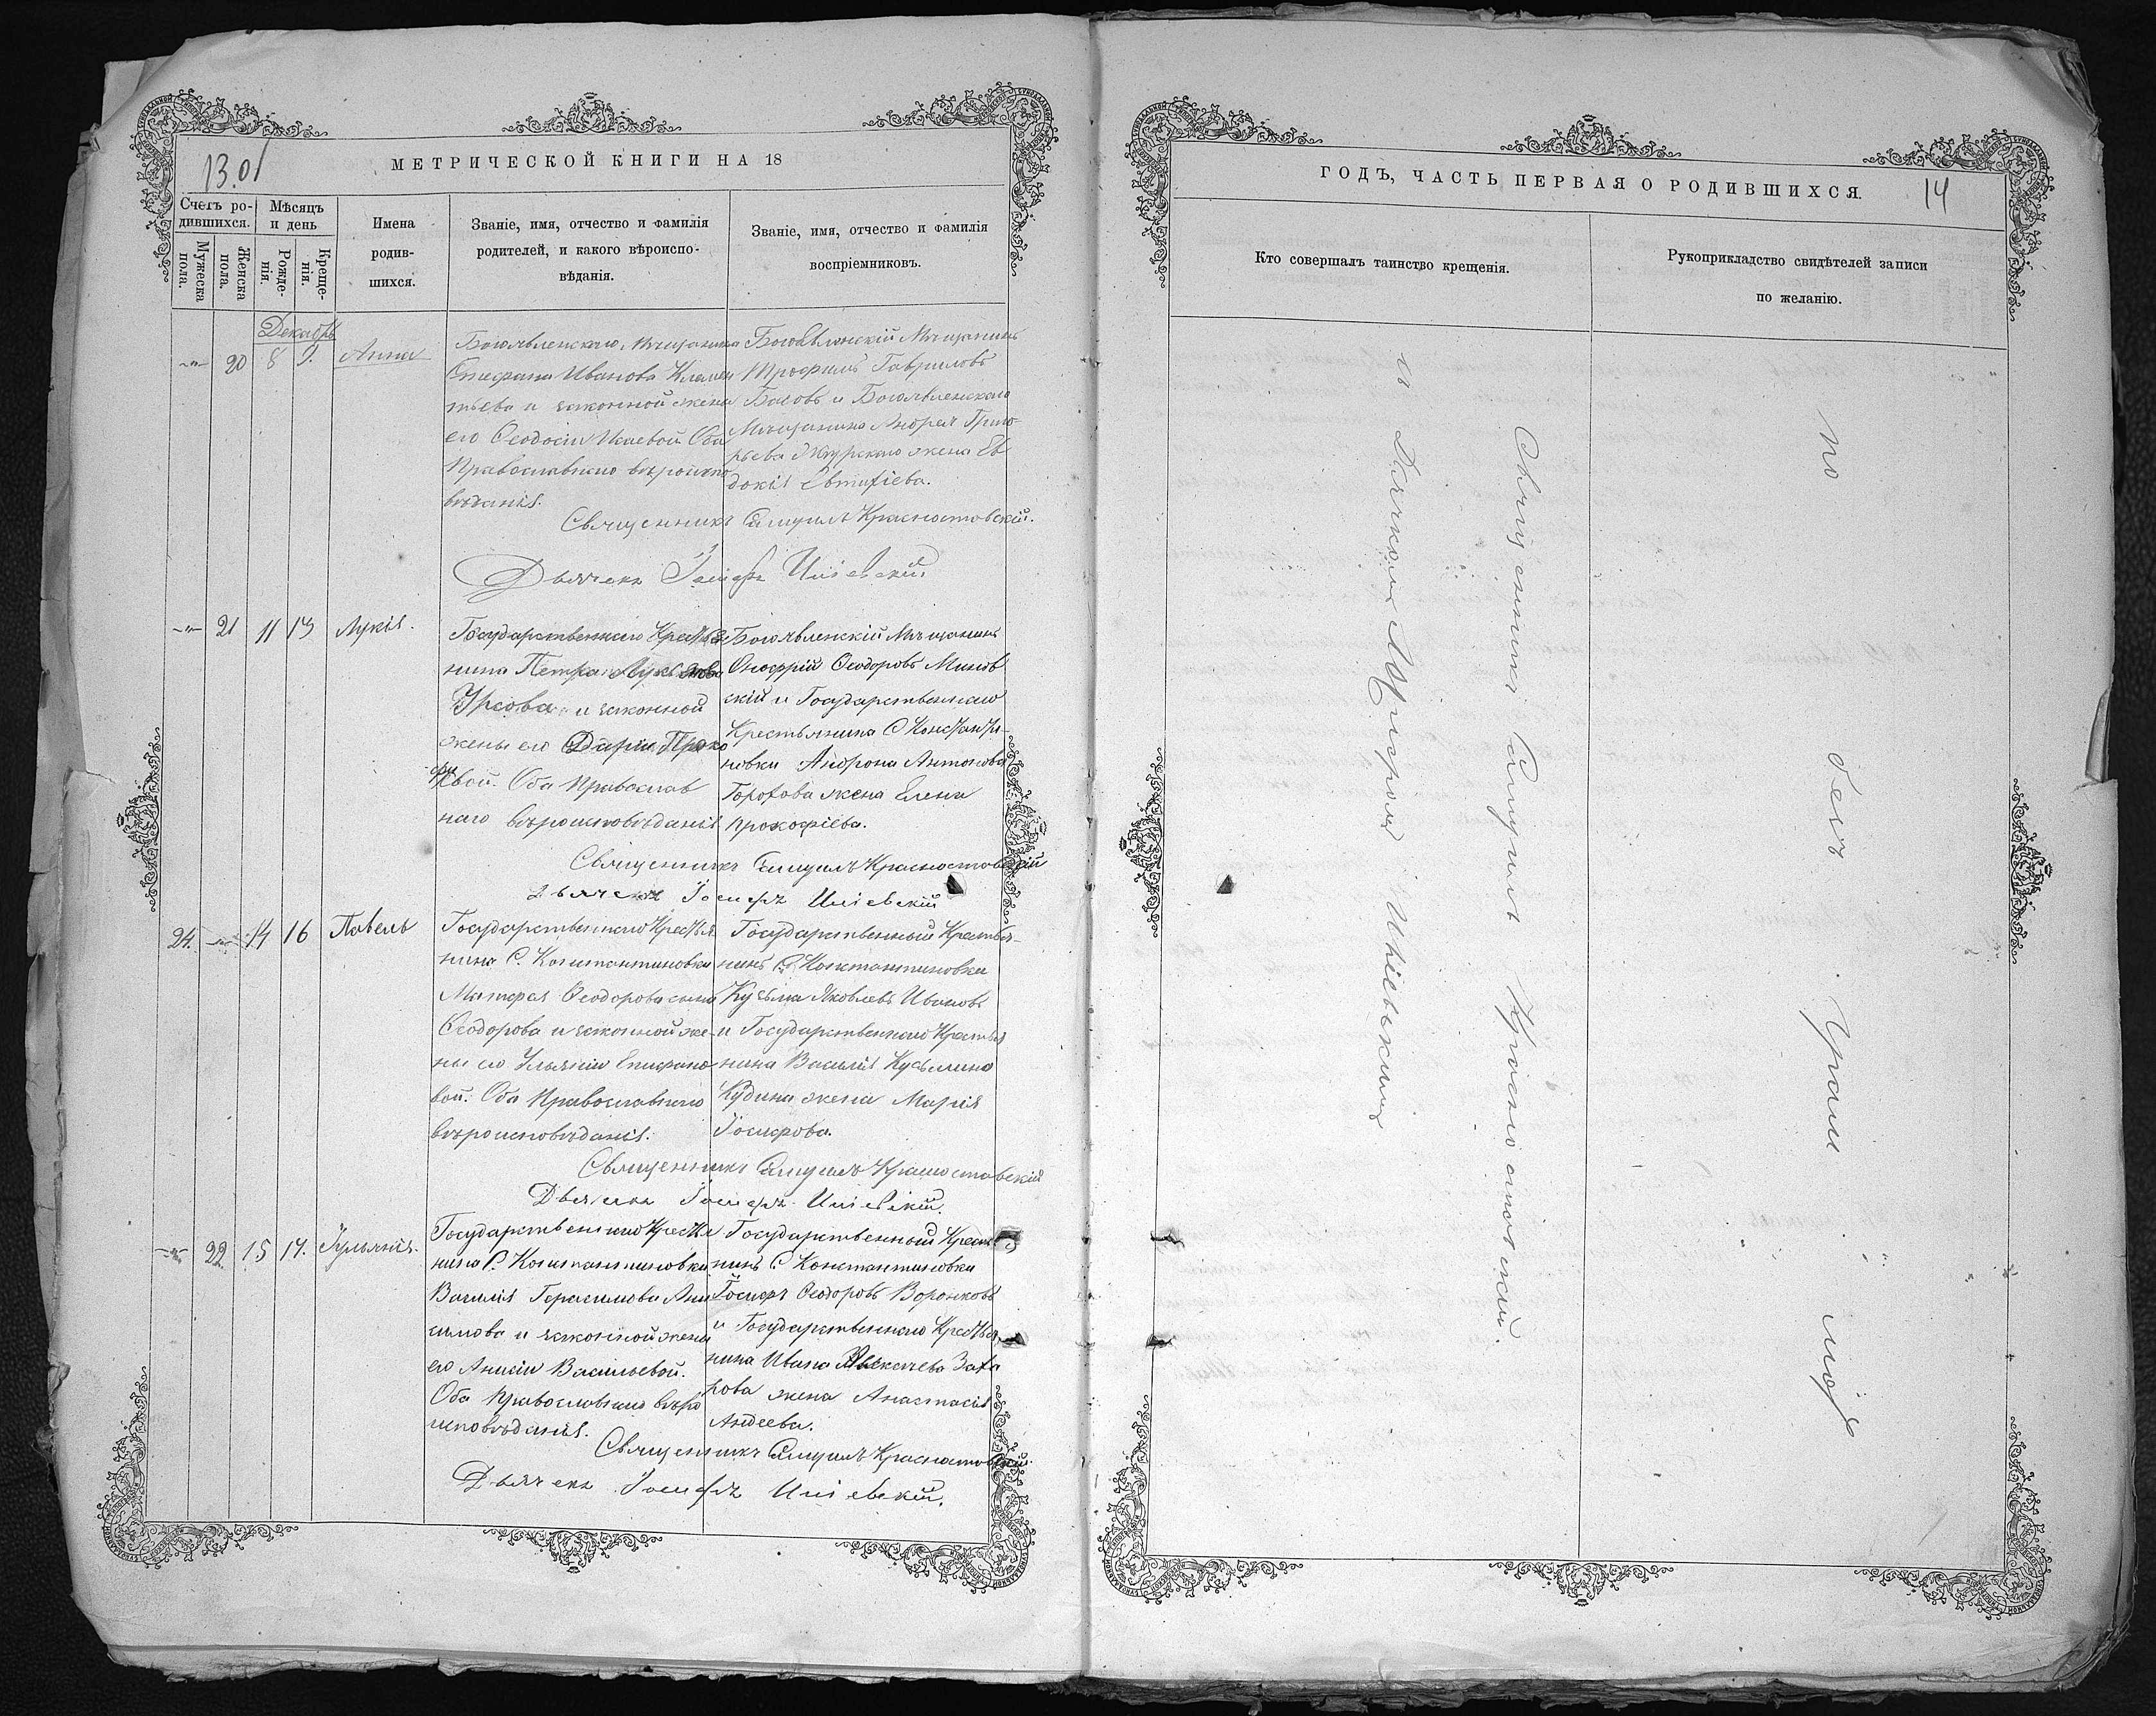 13.об
МЕТРИЧЕСКОЙ КНИГИ НА 18
Счетъ ро-
дившихся.
Мѣсяцъ
и день
Имена
родив-
шихся.
Званіе, имя, отчество и фамилія
родителей, и какого вѣроиспо-
вѣданія.
Званіе, имя, отчество и фамилія
воспріемниковъ.
Мужеска
пола.
Женска
пола.
Рожде-
нія.
Креще-
нія.
Декабрь
20 8 9. Анна
Богоявленскаго Мѣщанина
Стефана Иванова Клемен
тьева и законной жены
его Ѳеодосіи Исаевой. Оба
Православнаго вѣроиспо
вѣданія.
Богоявленскій Мѣщанинъ
Трофимъ Гавриловъ
Басовъ и Богоявленскаго
Мѣщанина Андрея Григо-
рьева жена Ев
докія Евтихіева.
Священникъ Самуилъ Красностовскій.
Дьячекъ Іосифъ
21 11 13 Лукія.
Государственнаго Крестья
нина Петра
Урсова и законной
жены его Даріи Проко
фіевой. Оба Православ
наго вѣроисповѣданія
Богоявленскій Мѣщанинъ
Онофрій Ѳеодоровъ Минов
скій и Государственнаго
Крестьянина С Константи-
новки Андрона Антонова
Горохова жена Елена
Прокофіева.
Священникъ Самуилъ Красностовскій
Дьячекъ Іосифъ
24. 14 16 Павелъ
Государственнаго Крестья
нина С. Константиновки
Матфея Ѳеодорова сына
Ѳеодорова и законной же-
ны его Ульяніи Епифано
вой. Оба Православнаго
вѣроисповѣданія.
Государственный Крестья-
нинъ С. Константиновки
Кузьма Яковлевъ Ивановъ
и Государственнаго Крестья
нина Василія Кузьмина
Кудина жена Марія
Іосифова.
Священникъ Самуилъ Красностовскій
Дьячекъ Іосифъ
22. 15 17. Іульянія.
Государственнаго Крестья
нина С. Константиновки
Василія Герасимова Ани
симова и законной жены
его Анисіи Васильевой.
Оба Православнаго вѣро
исповѣданія.
Государственный Крестья
нинъ С Константиновки
Іосифъ Ѳеодоровъ Воронковъ
и Государственнаго Крестья
нина Ивана Заха
рова жена Анастасія
Андеева.
Священникъ Самуилъ Красностовскій.
Дьячекъ Іосифъ
ГОДЪ, ЧАСТЬ ПЕРВАЯ О РОДИВШИХСЯ.
14
Кто совершалъ таинство крещенія.
Рукоприкладство свидѣтелей записи
по желанію.
Священникъ Самуилъ Красностовскій.
съ Дьячкомъ